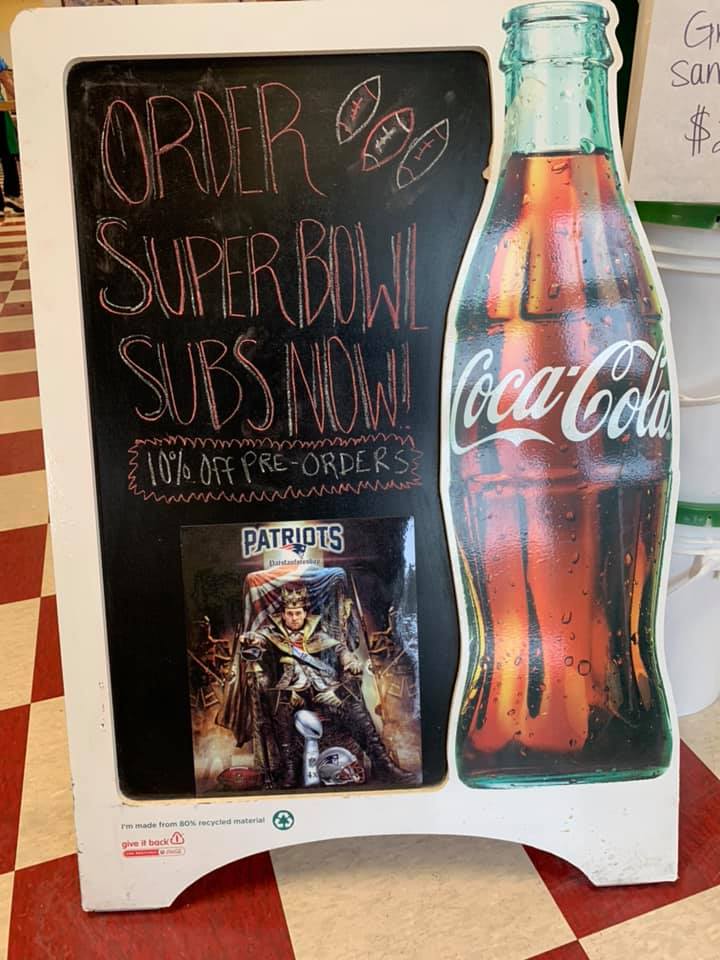 ORDER
SUPER BOWL
SUBS NOW!
10% OFF PRE-ORDERS
PATRIOTS
4x
Coca-Cola
I'm made from 80% recycled material
give it back
$